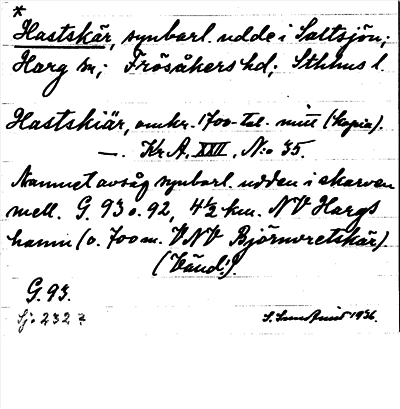 *
Hastskär, synbarl. udde i Saltsjön;
Harg sn; Frösåkers hd; Sthlms l.
Hastskiär, omkr. 1700-tal. mitt (kopia).
—. Kr. A, XXII, N:o 35.
Namnet avsåg synbarl. udden i skarven
mell. G. 93 o. 92, 4 1/2 km. NV Hargs
hamn (o. 700 m. VNV Björnoretskär)
(Vänd!).
G. 93.
Sj. 232 ?
1936.